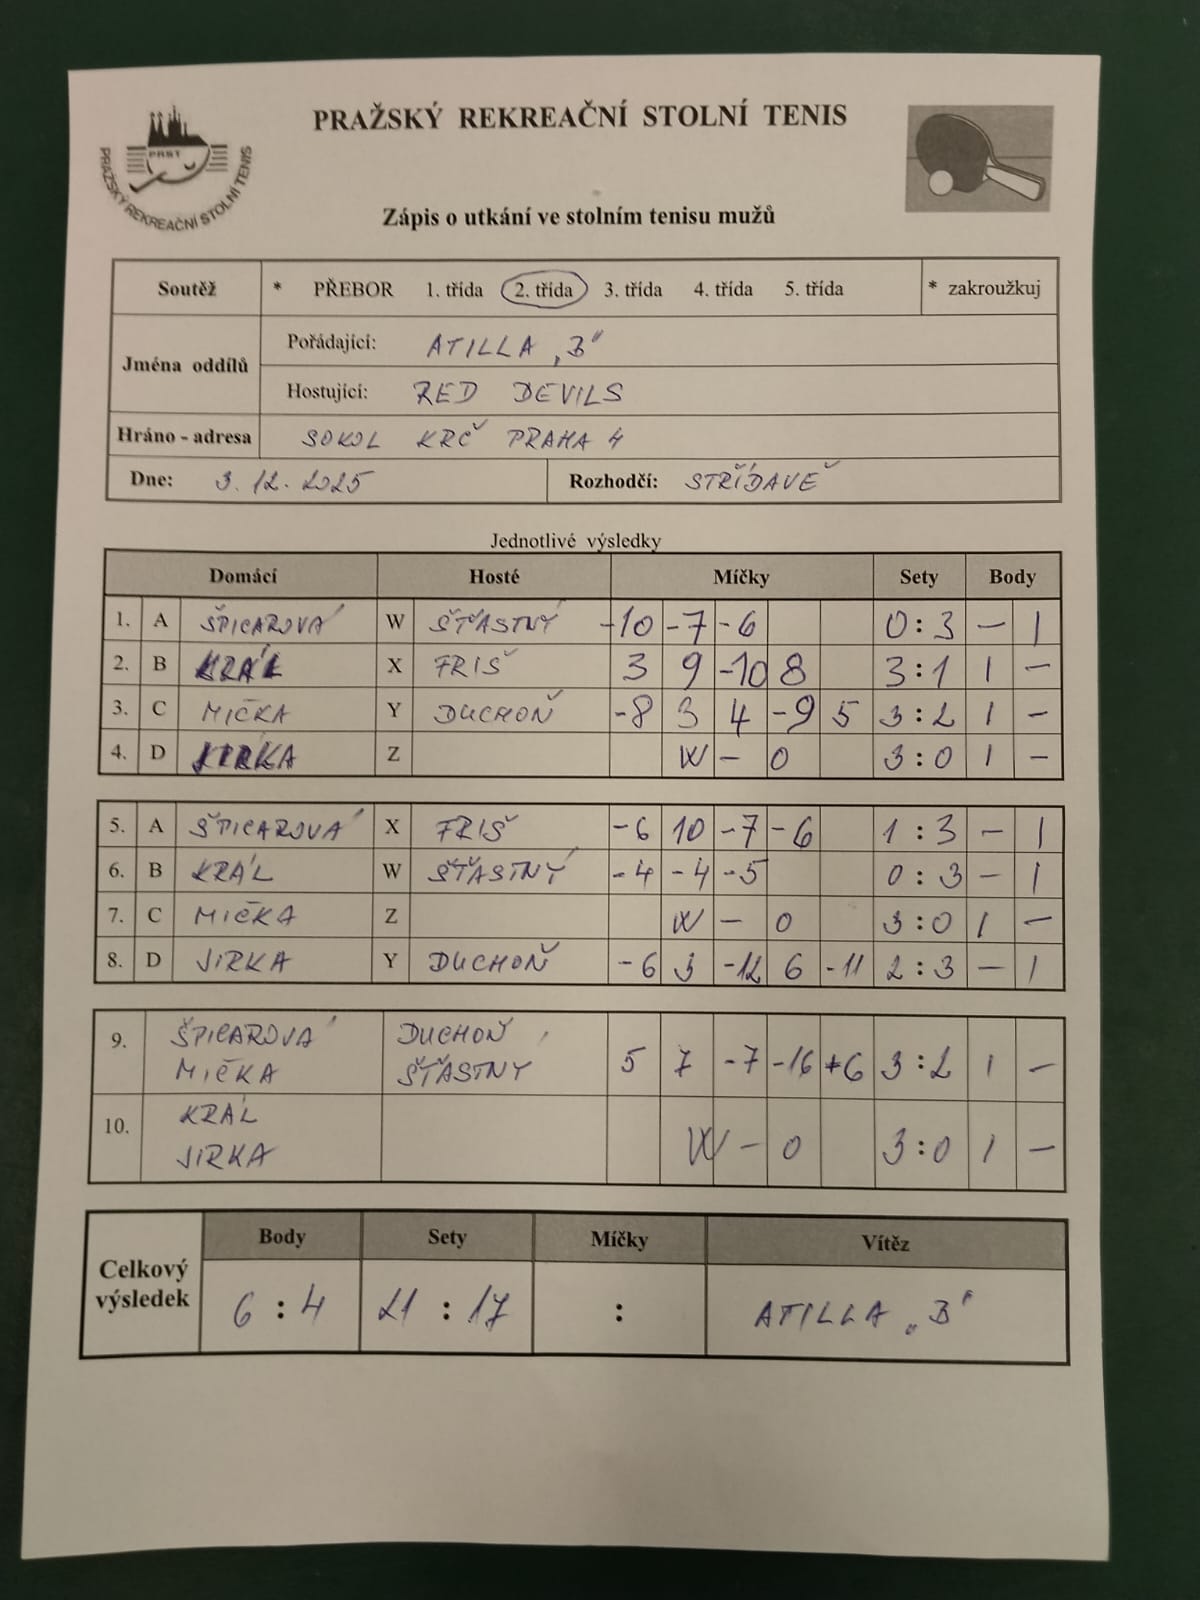 PRAŽSKÝ REKREAČNÍ STOLNÍ TENIS
PRST
PRAŽSKÝ REKREAČNÍ STOLNÍ TENIS
Zápis o utkání ve stolním tenisu mužů
Soutěž * PŘEBOR 1. třída 2. třída 3. třída 4. třída 5. třída * zakroužkuj
Jména oddílů
Pořádající: ATILLA „B"
Hostující: RED DEVILS
Hráno - adresa SOKOL KRČ PRAHA 4
Dne: 3. 12. 2025 Rozhodčí: STŘÍDAVĚ
Jednotlivé výsledky
Domácí Hosté Míčky Sety Body
1. A ŠPICAROVÁ W ŠŤASTNÝ -10 -7 -6 0:3 – 1
2. B KRÁL X FRIŠ 3 9 -10 8 3:1 1 –
3. C MIČKA Y DUCHOŇ -8 3 4 -9 5 3:2 1 –
4. D JIRKA Z W – 0 3:0 1 –
5. A ŠPICAROVÁ X FRIŠ -6 10 -7 -6 1:3 – 1
6. B KRÁL W ŠŤASTNÝ -4 -4 -5 0:3 – 1
7. C MIČKA Z W – 0 3:0 1 –
8. D JIRKA Y DUCHOŇ -6 3 -12 6 -11 2:3 – 1
9. ŠPICAROVÁ DUCHOŇ
MIČKA ŠŤASTNÝ 5 7 -7 -16 +6 3:2 1 –
10. KRÁL
JIRKA W – 0 3:0 1 –
Celkový výsledek
Body Sety Míčky Vítěz
6 : 4 21 : 17 : ATILLA „B"